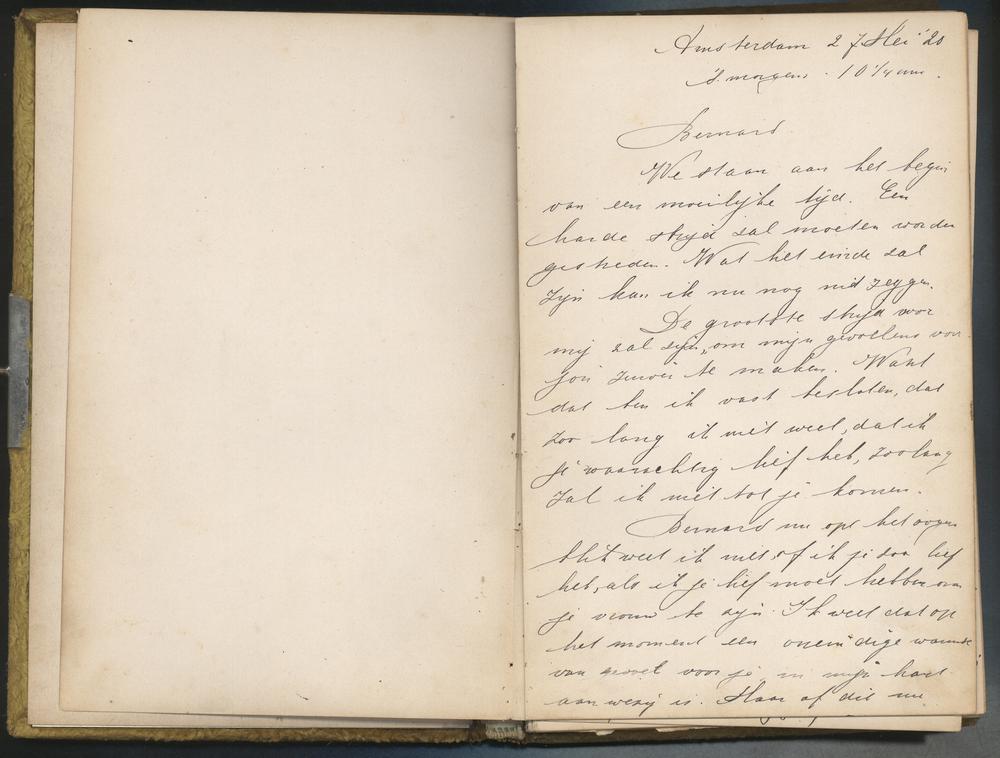 Amsterdam 27 Mei '20
's morgens. 10 1/4 uur.
Bernard
We staan aan het begin
van een moeilijke tijd. Een
harde strijd zal moeten worden
gestreden. Wat het einde zal
zijn kan ik nu nog niet zeggen.
De grootste strijd voor
mij zal zijn, om mijn gevoelens voor
jou zuiver te maken. Want
dat ben ik vast besloten, dat
zoo lang ik niet weet, dat ik
je waarachtig lief heb, zoolang
zal ik niet tot je komen.
Bernard nu op het oogen
blik weet ik niet, of ik je zoo lief
heb, als ik je lief moet hebben om
je vrouw te zijn. Ik weet dat op
het moment een oneindige warmte
van voor je in mijn hart
aanwezig is. Maar of dit nu